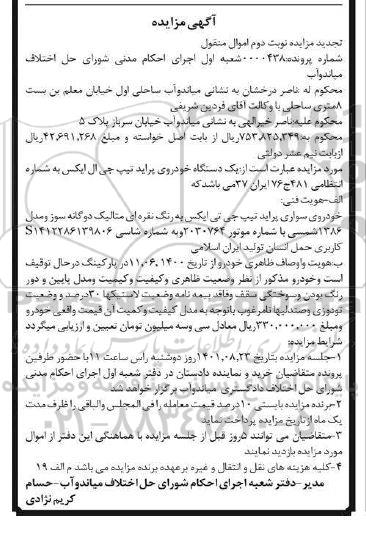 آگهی مزایده
تجدید مزایده نوبت دوم اموال منقول
شماره پرونده:۰۰۰۰۴۳۸شعبه اول اجرای احکام مدنی شورای حل اختلاف
میاندوآب
محکوم له :ناصر درخشان به نشانی میاندوآب ساحلی اول خیابان معلم بن بست
۸متری ساحلی با وکالت آقای فردین شریفی
محکوم علیه:ناصر خیرالهی به نشانی میاندوآب خیابان سرباز پلاک ۵
محکوم به:۷۵۳،۸۲۵،۳۴۹ریال از بابت اصل خواسته و مبلغ ۴۲،۶۹۱،۲۶۸ریال
ازبابت نیم عشر دولتی
مورد مزایده عبارت است از:یک دستگاه خودروی پراید تیپ جی ال ایکس به شماره
انتظامی ۴۸۱ج۷۶ ایران ۳۷می باشدکه
الف-هویت فنی:
خودروی سواری پراید تیپ جی تی ایکس به رنگ نقره ای متالیک دوگانه سوز ومدل
۱۳۸۶شمسی با شماره موتور ۲۰۳۰۷۶۴وبه شماره شاسی S۱۴۱۲۲۸۶۱۳۹۸۰۶
کاربری حمل انسان تولید ایران اسلامی
ب:هویت واوصاف ظاهری خودرو از تاریخ ۱۴۰۰،۱۱،۰۶در پارکینگ درحال توقیف
است وخودرو مذکور از نظر وضعیت ظاهری وکیفیت وکیمیت ومدل پایین و دور
رنگ بودن وسوختگی سقف وفاقد بیمه نامه وضعیت لاستیکها ۳۰درصد و وضعیت
تودوزی وصندلیها نامرغوب باتوجه به مدل کیفیت و کمیت آن قیمت واقعی خودرو
ومبلغ ۳۳۰،۰۰۰،۰۰۰ریال معادل سی وسه میلیون تومان تعیین و ارزیابی میگردد
شرایط مزایده:
۱-جلسه مزایده بتاریخ ۱۴۰۱،۰۸،۲۳روز دوشنبه راس ساعت ۱۱با حضور طرفین
پرونده متقاضیان خرید و نماینده دادستان در دفتر شعبه اول اجرای احکام مدنی
شورای حل اختلاف دادگستری میاندوآب برگزار خواهد شد
۲-برنده مزایده بایستی ۱۰درصد قیمت معامله را فی المجلس والباقی را ظرف مدت
یک ماه ازتاریخ مزایده پرداخت نماید
۳-متقاضیان می توانند ۵روز قبل از جلسه مزایده با هماهنگی این دفتر از اموال
مورد مزایده بازدید نمایند
۴-کلیه هزینه های نقل و انتقال و غیره برعهده برنده مزایده می باشد م الف ۱۹
مدیر -دفتر شعبه اجرای احکام شورای حل اختلاف میاندوآب-حسام
کریم نژادی